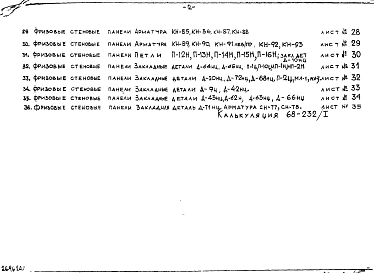 -2-
29. Фризовые стеновые панели Арматура КН-85, КН-86, КН-87, КН-88 лист № 28
30. Фризовые стеновые панели Арматура КН-89, КН-90, КН-91, КН-92, КН-93 лист № 29
31. Фризовые стеновые панели Петли П-12Н, П-13Н, П-14Н, П-15Н, П-16Н; закл. дет. лист № 30
32. Фризовые стеновые панели Закладные детали лист № 31
33. Фризовые стеновые панели Закладные детали Д-72Н, Д-68Н лист № 32
34. Фризовые стеновые панели Закладные детали Д-9Н, Д-42Н. лист № 33
35. Фризовые стеновые панели Закладные детали Д-43Н, Д-62Н, Д-63Н, Д-66Н лист № 34
36. Фризовые стеновые панели Закладная деталь Д-71Н, Арматура СН-77, СН-78. лист № 35
Калькуляция 68-232/I